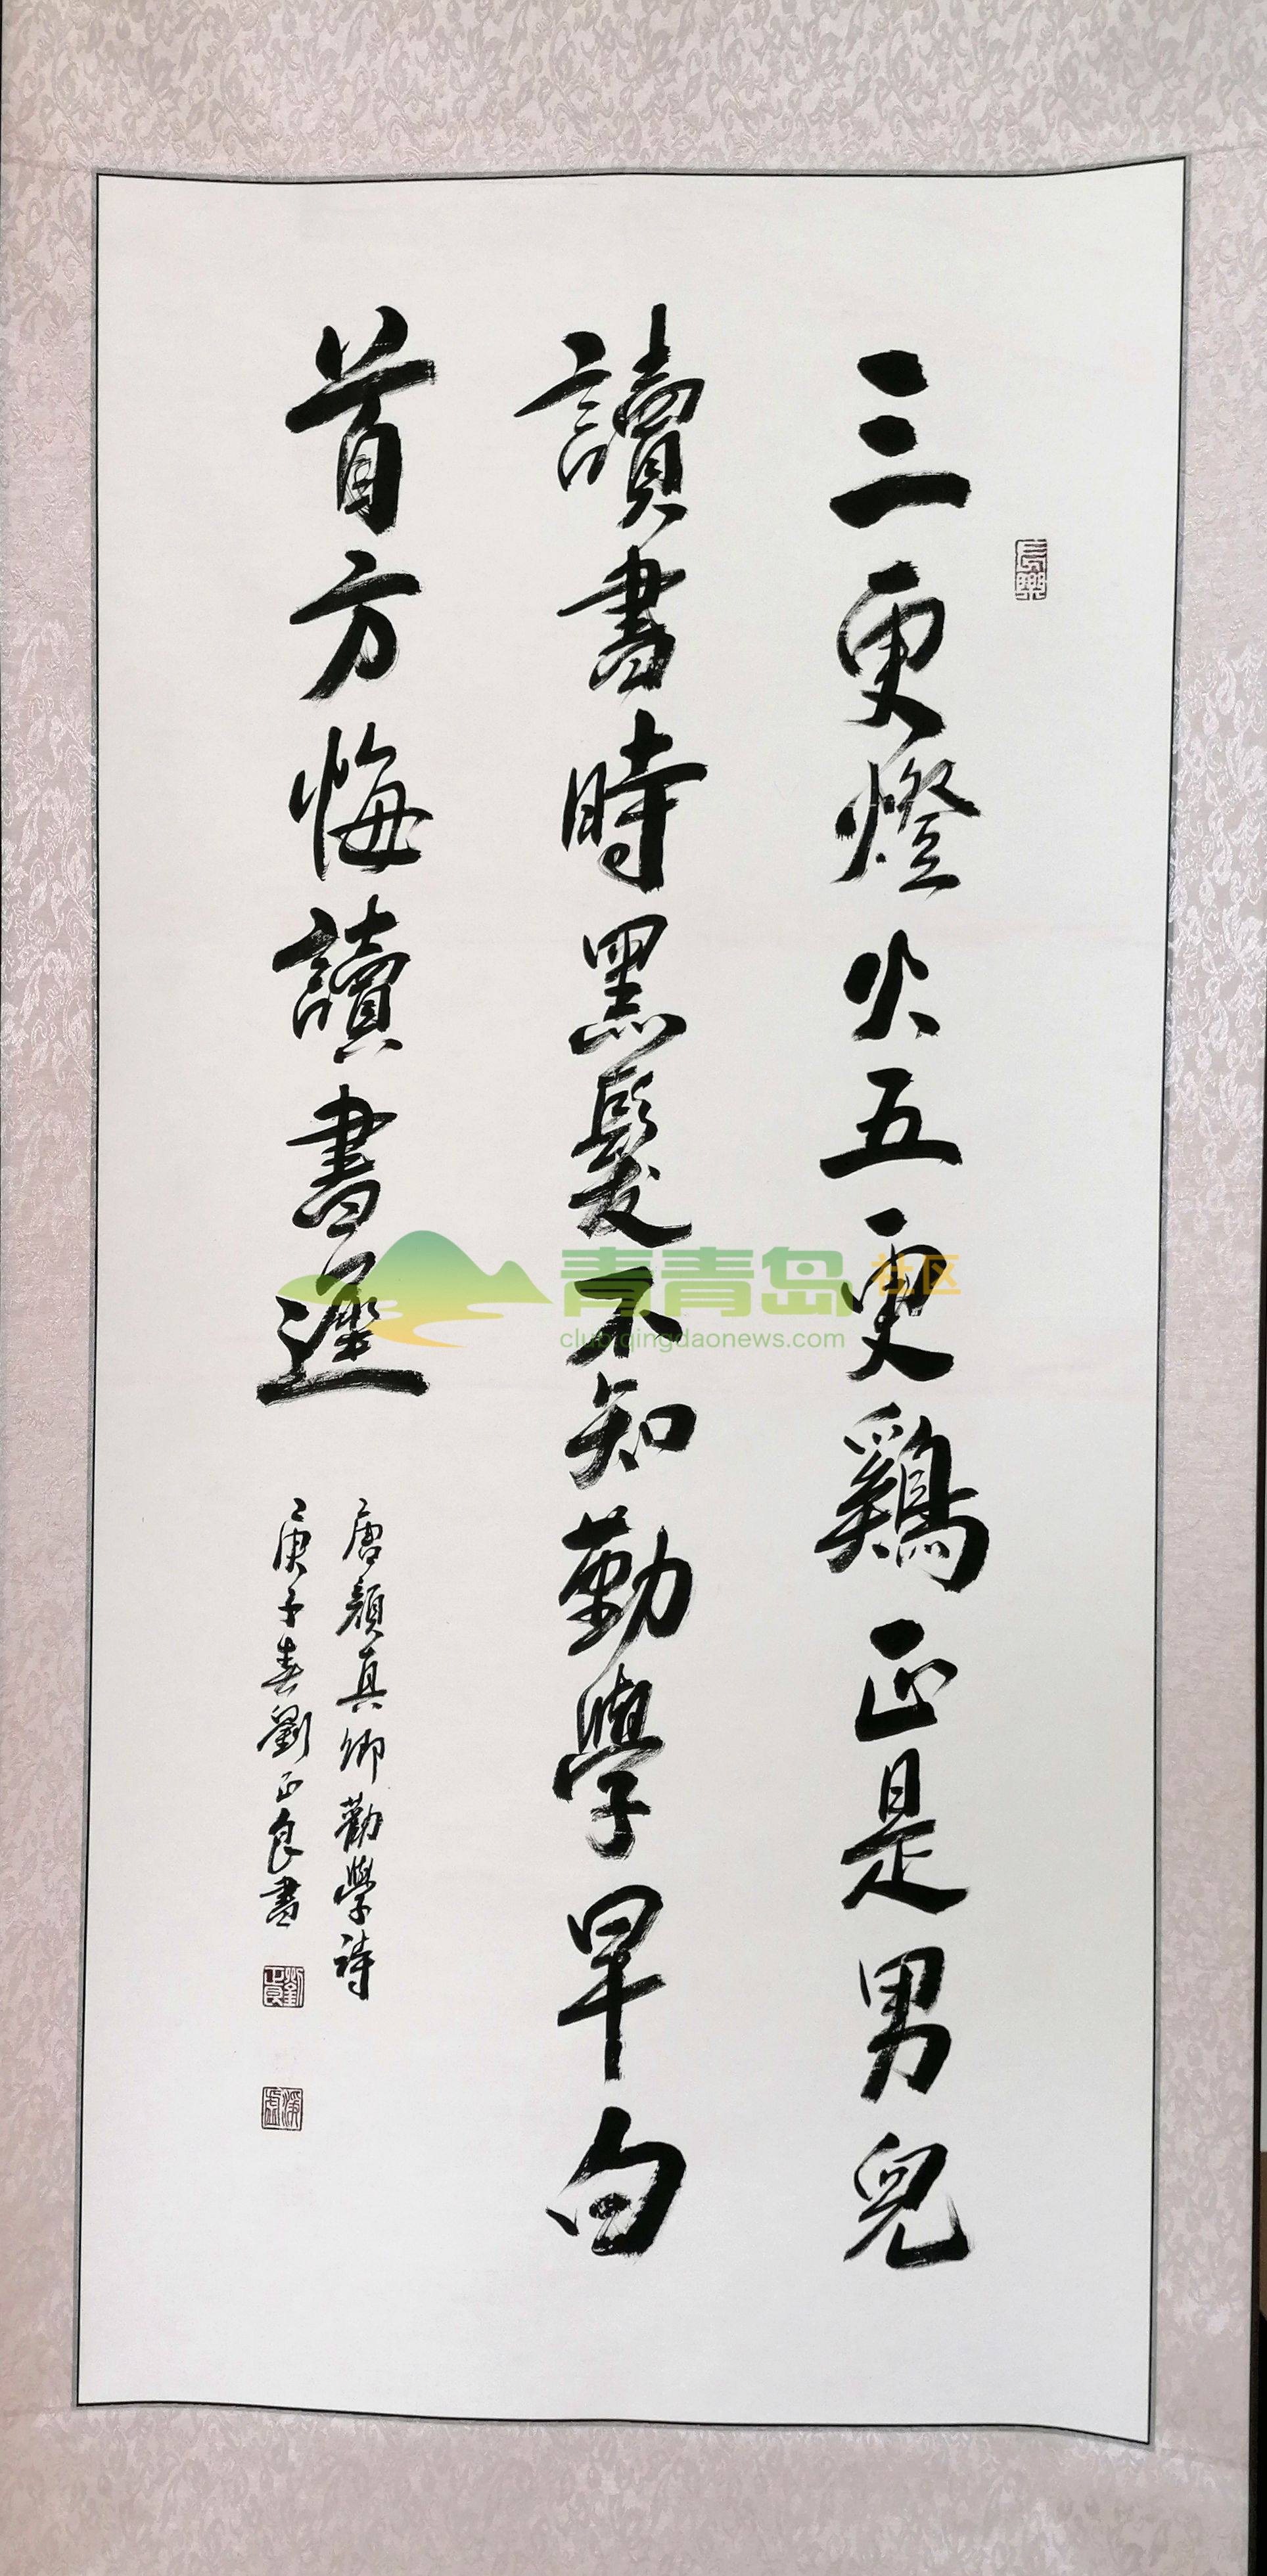 三更燈火五更鷄正是男兒
讀書時黑髮不知勤學早白
首方悔讀書遲
唐顏真卿勸學詩
庚子春劉正良書
長樂
劉正良
青青岛社区
club.qingdaonews.com